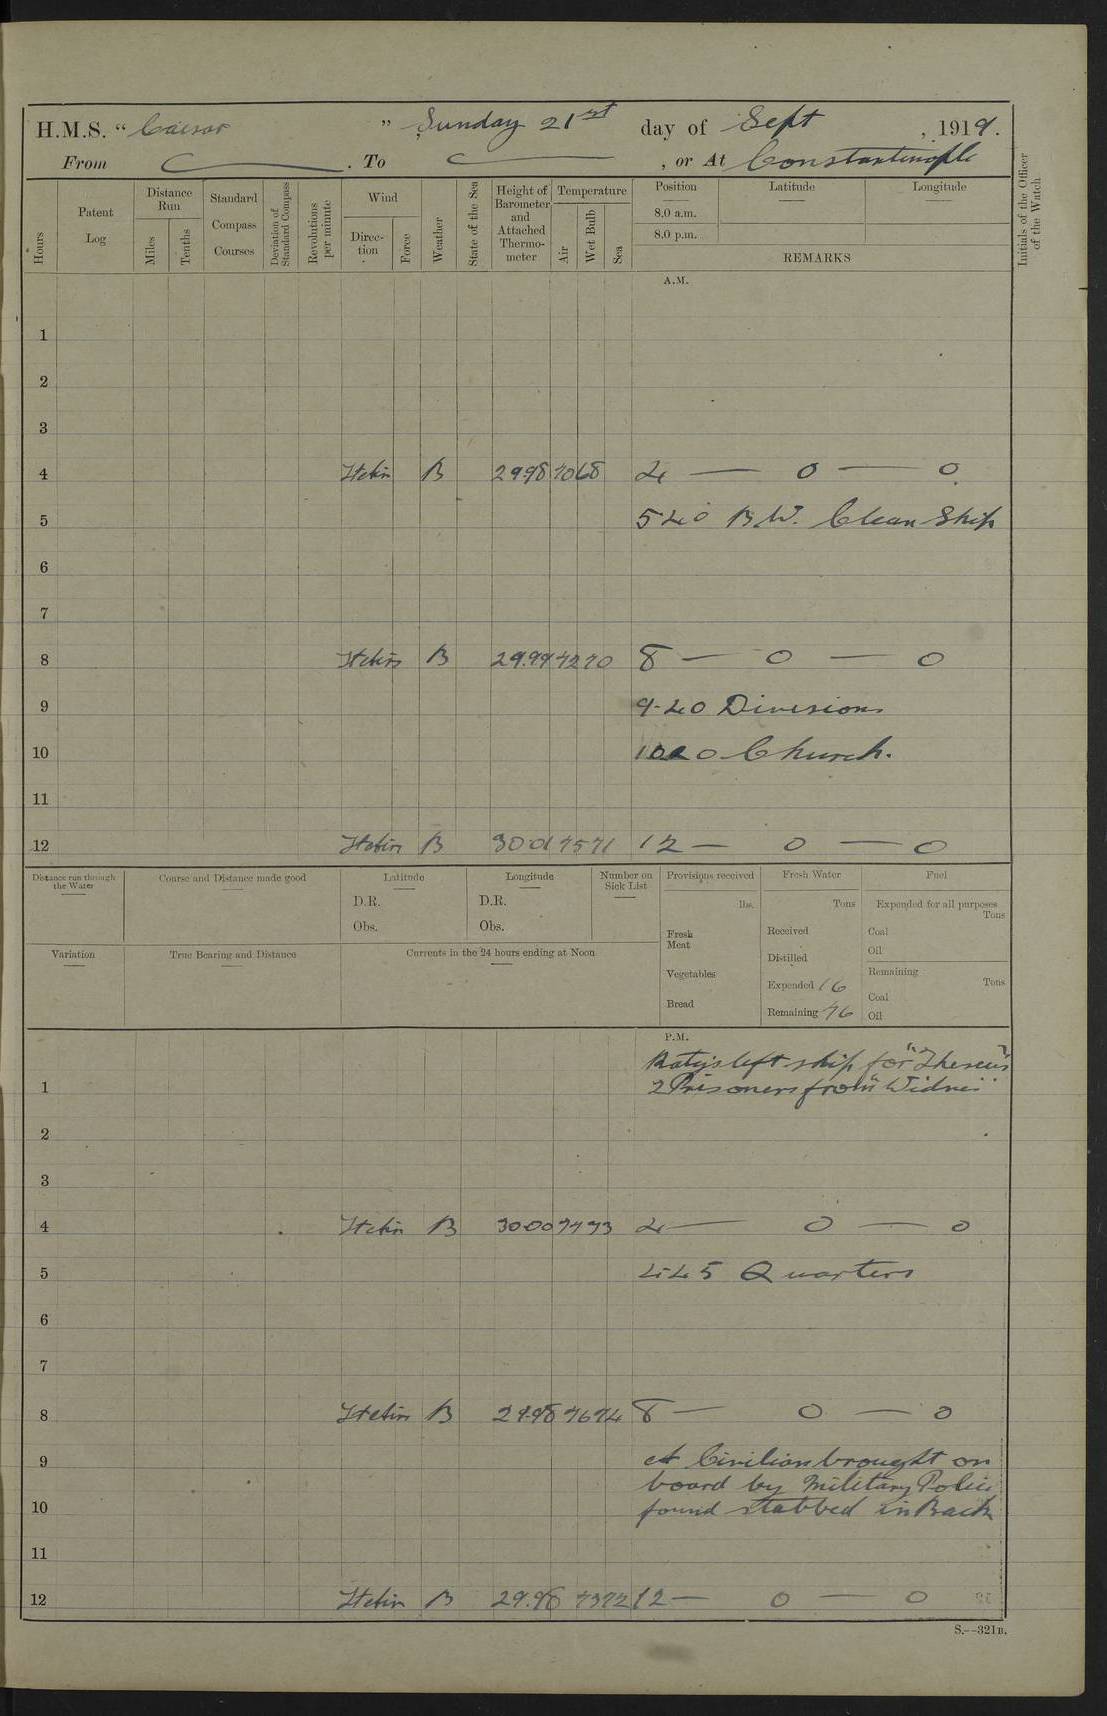 H.M.S. “ Caesar ” Sunday 21st day of Sept , 1919.
From . To , or At Constantinople
Hours
Patent Log
Distance Run
Miles
Tenths
Standard Compass Courses
Deviation of Standard Compass
Revolutions per minute
Wind
Direction
Force
Weather
State of the Sea
Height of Barometer and Attached Thermometer
Temperature
Air
Wet Bulb
Sea
Position
8.0 a.m.
8.0 p.m.
Latitude
Longitude
REMARKS
Initials of the Officer of the Watch
A.M.
1
2
3
4 B 29.98 70 68 4 — 0 — 0
5 540 B.W. Clean Ship
6
7
8 B 29.99 72 70 8 — 0 — 0
9 9-40 Divisions
10 Church.
11
12 B 30 01 75 71 12 — 0 — 0
Distance run through the Water
Course and Distance made good
Latitude
D.R.
Obs.
Longitude
D.R.
Obs.
Number on Sick List
Provisions received
lbs.
Fresh Meat
Vegetables
Bread
Fresh Water
Tons
Received
Distilled
Expended 16
Remaining 76
Fuel
Expended for all purposes
Tons
Coal
Oil
Remaining
Tons
Coal
Oil
Variation
True Bearing and Distance
Currents in the 24 hours ending at Noon
P.M.
left ship for "Theseus"
1 2 Prisoners from
2
3
4 B 30 00 77 73 4 — 0 — 0
5 4-45 Quarters
6
7
8 B 29.98 76 74 8 — 0 — 0
9 A Civilian brought on
board by Military Police
10 found stabbed in Back
11
12 B 29.98 73 72 12 — 0 — 0
S.—321B.